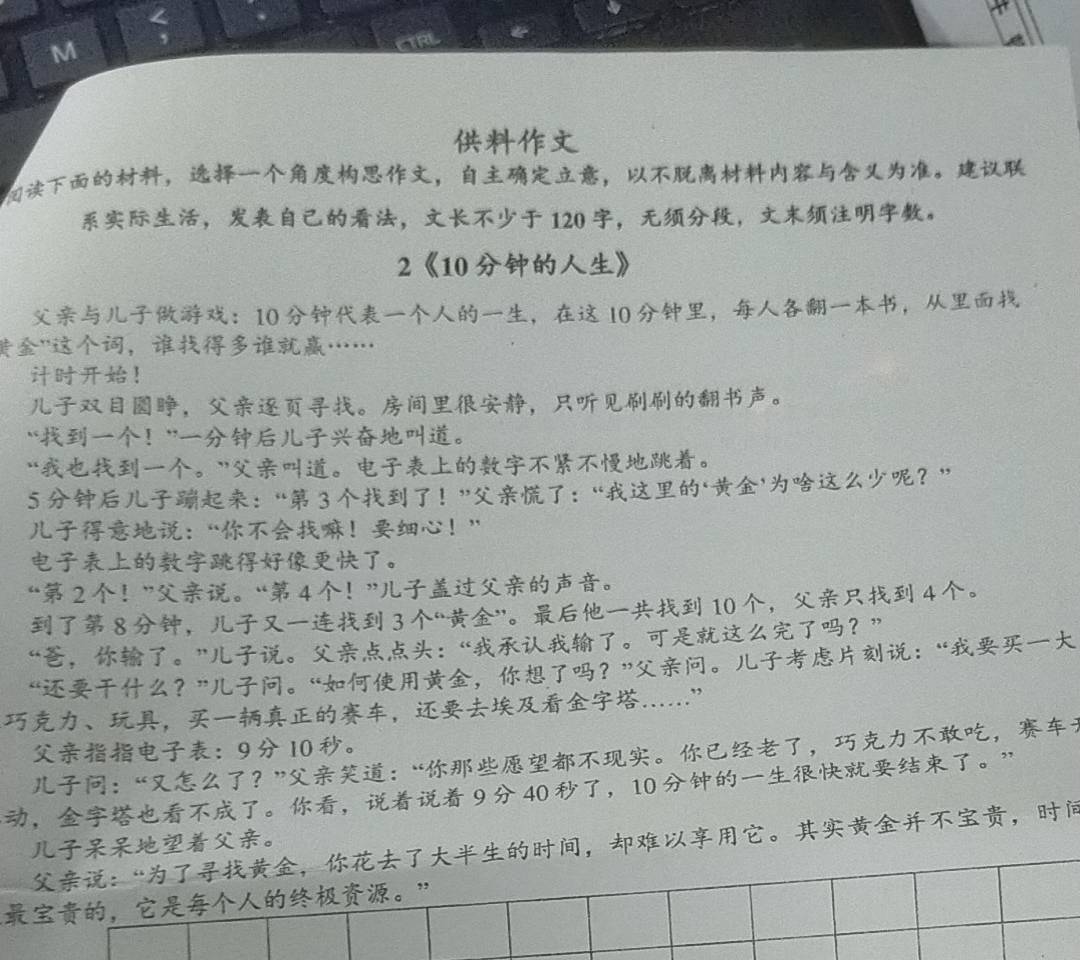 M
<
,
CTRL
供料作文
阅读下面的材料，选择一个角度构思作文，自主确定立意，以不脱离材料内容与含义为准。建议联
系实际生活，发表自己的看法，文长不少于 120 字，无须分段，文末须注明字数。
2《10 分钟的人生》
父亲与儿子做游戏：10 分钟代表一个人的一生，在这 10 分钟里，每人各翻一本书，从里面找
黄金”这个词，谁找得多谁就赢……
计时开始！
儿子双目圆睁，父亲逐页寻找。房间里很安静，只听见刷刷的翻书声。
“找到一个！”一分钟后儿子兴奋地叫道。
“我也找到一个。”父亲叫道。电子表上的数字不紧不慢地跳着。
5 分钟后儿子蹦起来：“第 3 个找到了！”父亲慌了：“我这里的‘黄金’为啥这么少呢？”
儿子得意地说：“你不会找嘛！要细心！”
电子表上的数字跳得好像更快了。
“第 2 个！”父亲说。“第 4 个！”儿子盖过父亲的声音。
到了第 8 分钟，儿子又一连找到 3 个“黄金”。最后他一共找到 10 个，父亲只找到 4 个。
“爸，你输了。”儿子说。父亲点点头：“我承认我输了。可是就这么完了吗？”
“还要干什么？”儿子问。“如何使用黄金，你想了吗？”父亲问。儿子考虑片刻说：“我要买一大
巧克力、玩具，买一辆真正的赛车，还要去埃及看金字塔……”
父亲指指电子表：9 分 10 秒。
儿子问：“又怎么了？”父亲笑道：“你那些愿望都不现实。你已经老了，巧克力不敢吃，赛车开
动，金字塔也看不成了。你看，说着说着 9 分 40 秒了，10 分钟的一生很快就要结束了。”
儿子呆呆地望着父亲。
父亲说：“为了寻找黄金，你花去了大半生的时间，却难以享用它。其实黄金并不宝贵，时间
最宝贵的，它是每个人的终极资源。”